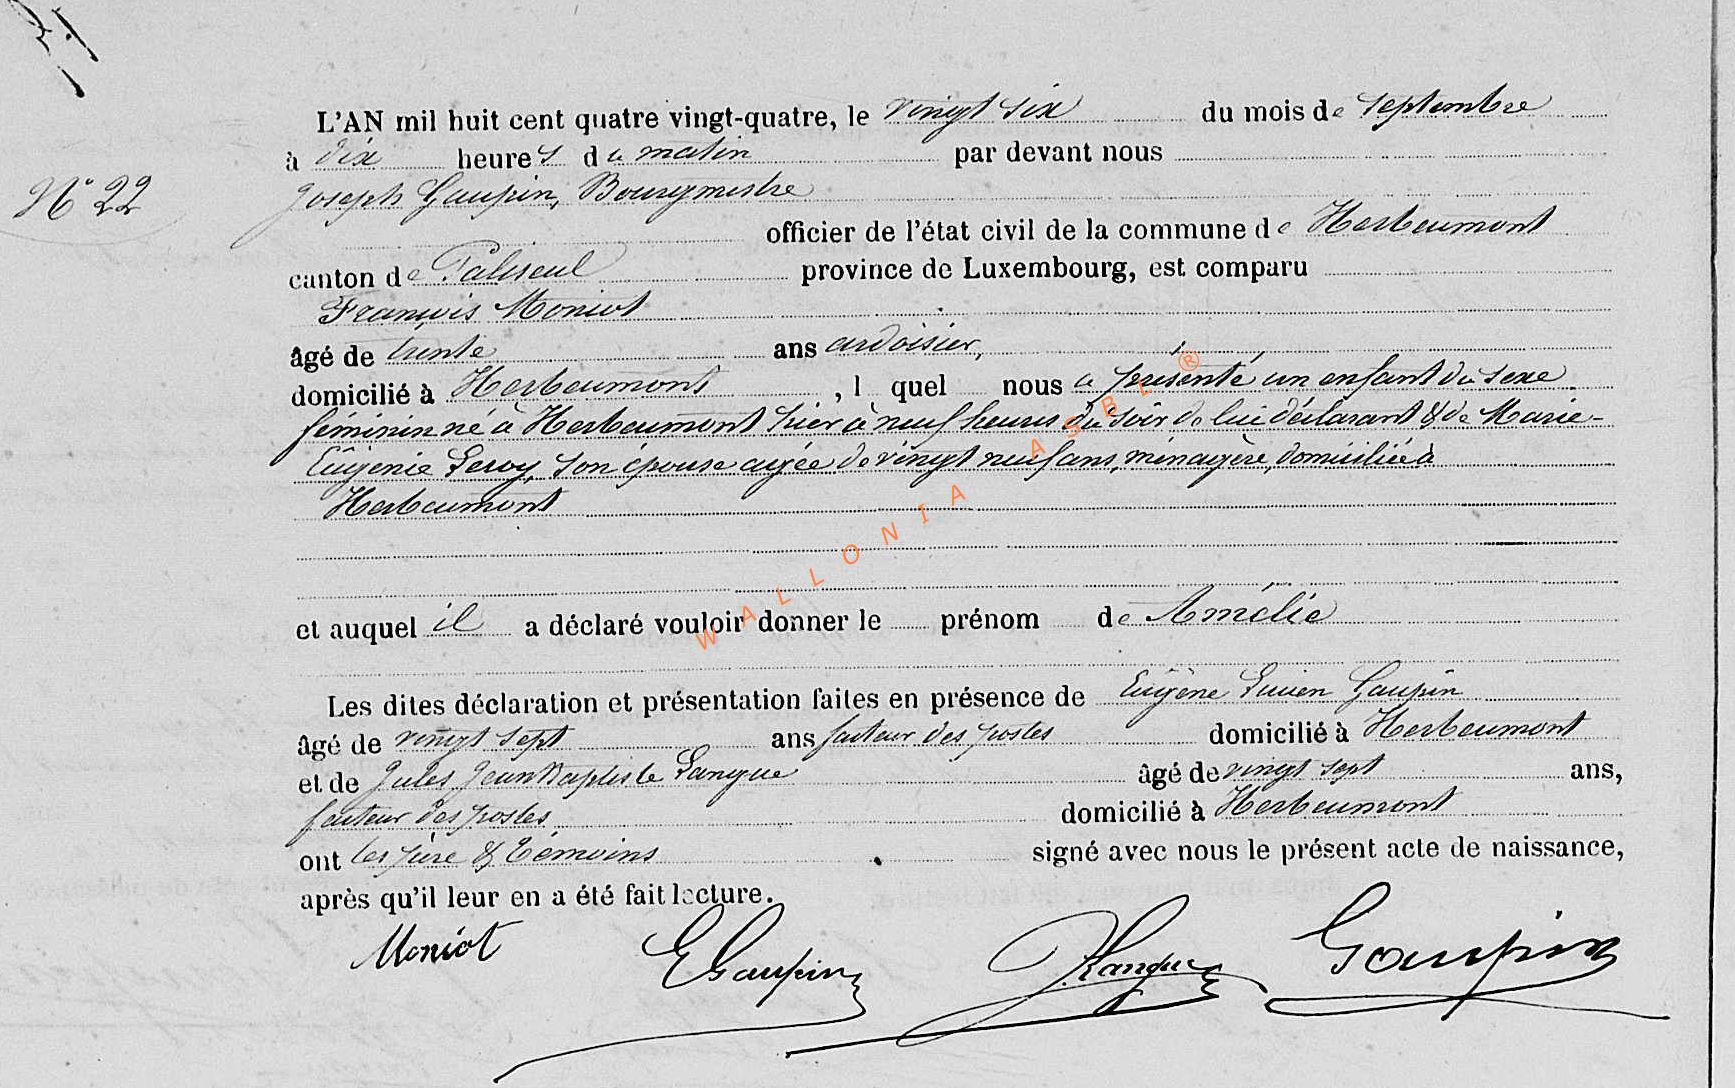 L'AN mil huit cent quatre vingt-quatre, le vingt six du mois de septembre
à dix heures du matin par devant nous
N° 22
Joseph Gaupin, Bourgmestre
officier de l'état civil de la commune de Herbeumont
canton de Paliseul province de Luxembourg, est comparu
François Moniot
âgé de trente ans ardoisier,
domicilié à Herbeumont, l quel nous a présenté un enfant du sexe
féminin né à Herbeumont hier à neuf heures du soir de lui déclarant & de Marie-
Eugénie Leroy, son épouse agée de vingt neuf ans, ménagère, domiciliée à
Herbeumont
WALLONIA ASBL ®
et auquel il a déclaré vouloir donner le prénom de Amélie
Les dites déclaration et présentation faites en présence de Eugène Lucien Gaupin
âgé de vingt sept ans facteur des postes domicilié à Herbeumont
et de Jules Jean Baptiste Langue âgé de vingt sept ans,
facteur des postes domicilié à Herbeumont
ont les père & témoins signé avec nous le présent acte de naissance,
après qu'il leur en a été fait lecture.
Moniot EGaupin JLangue Gaupin